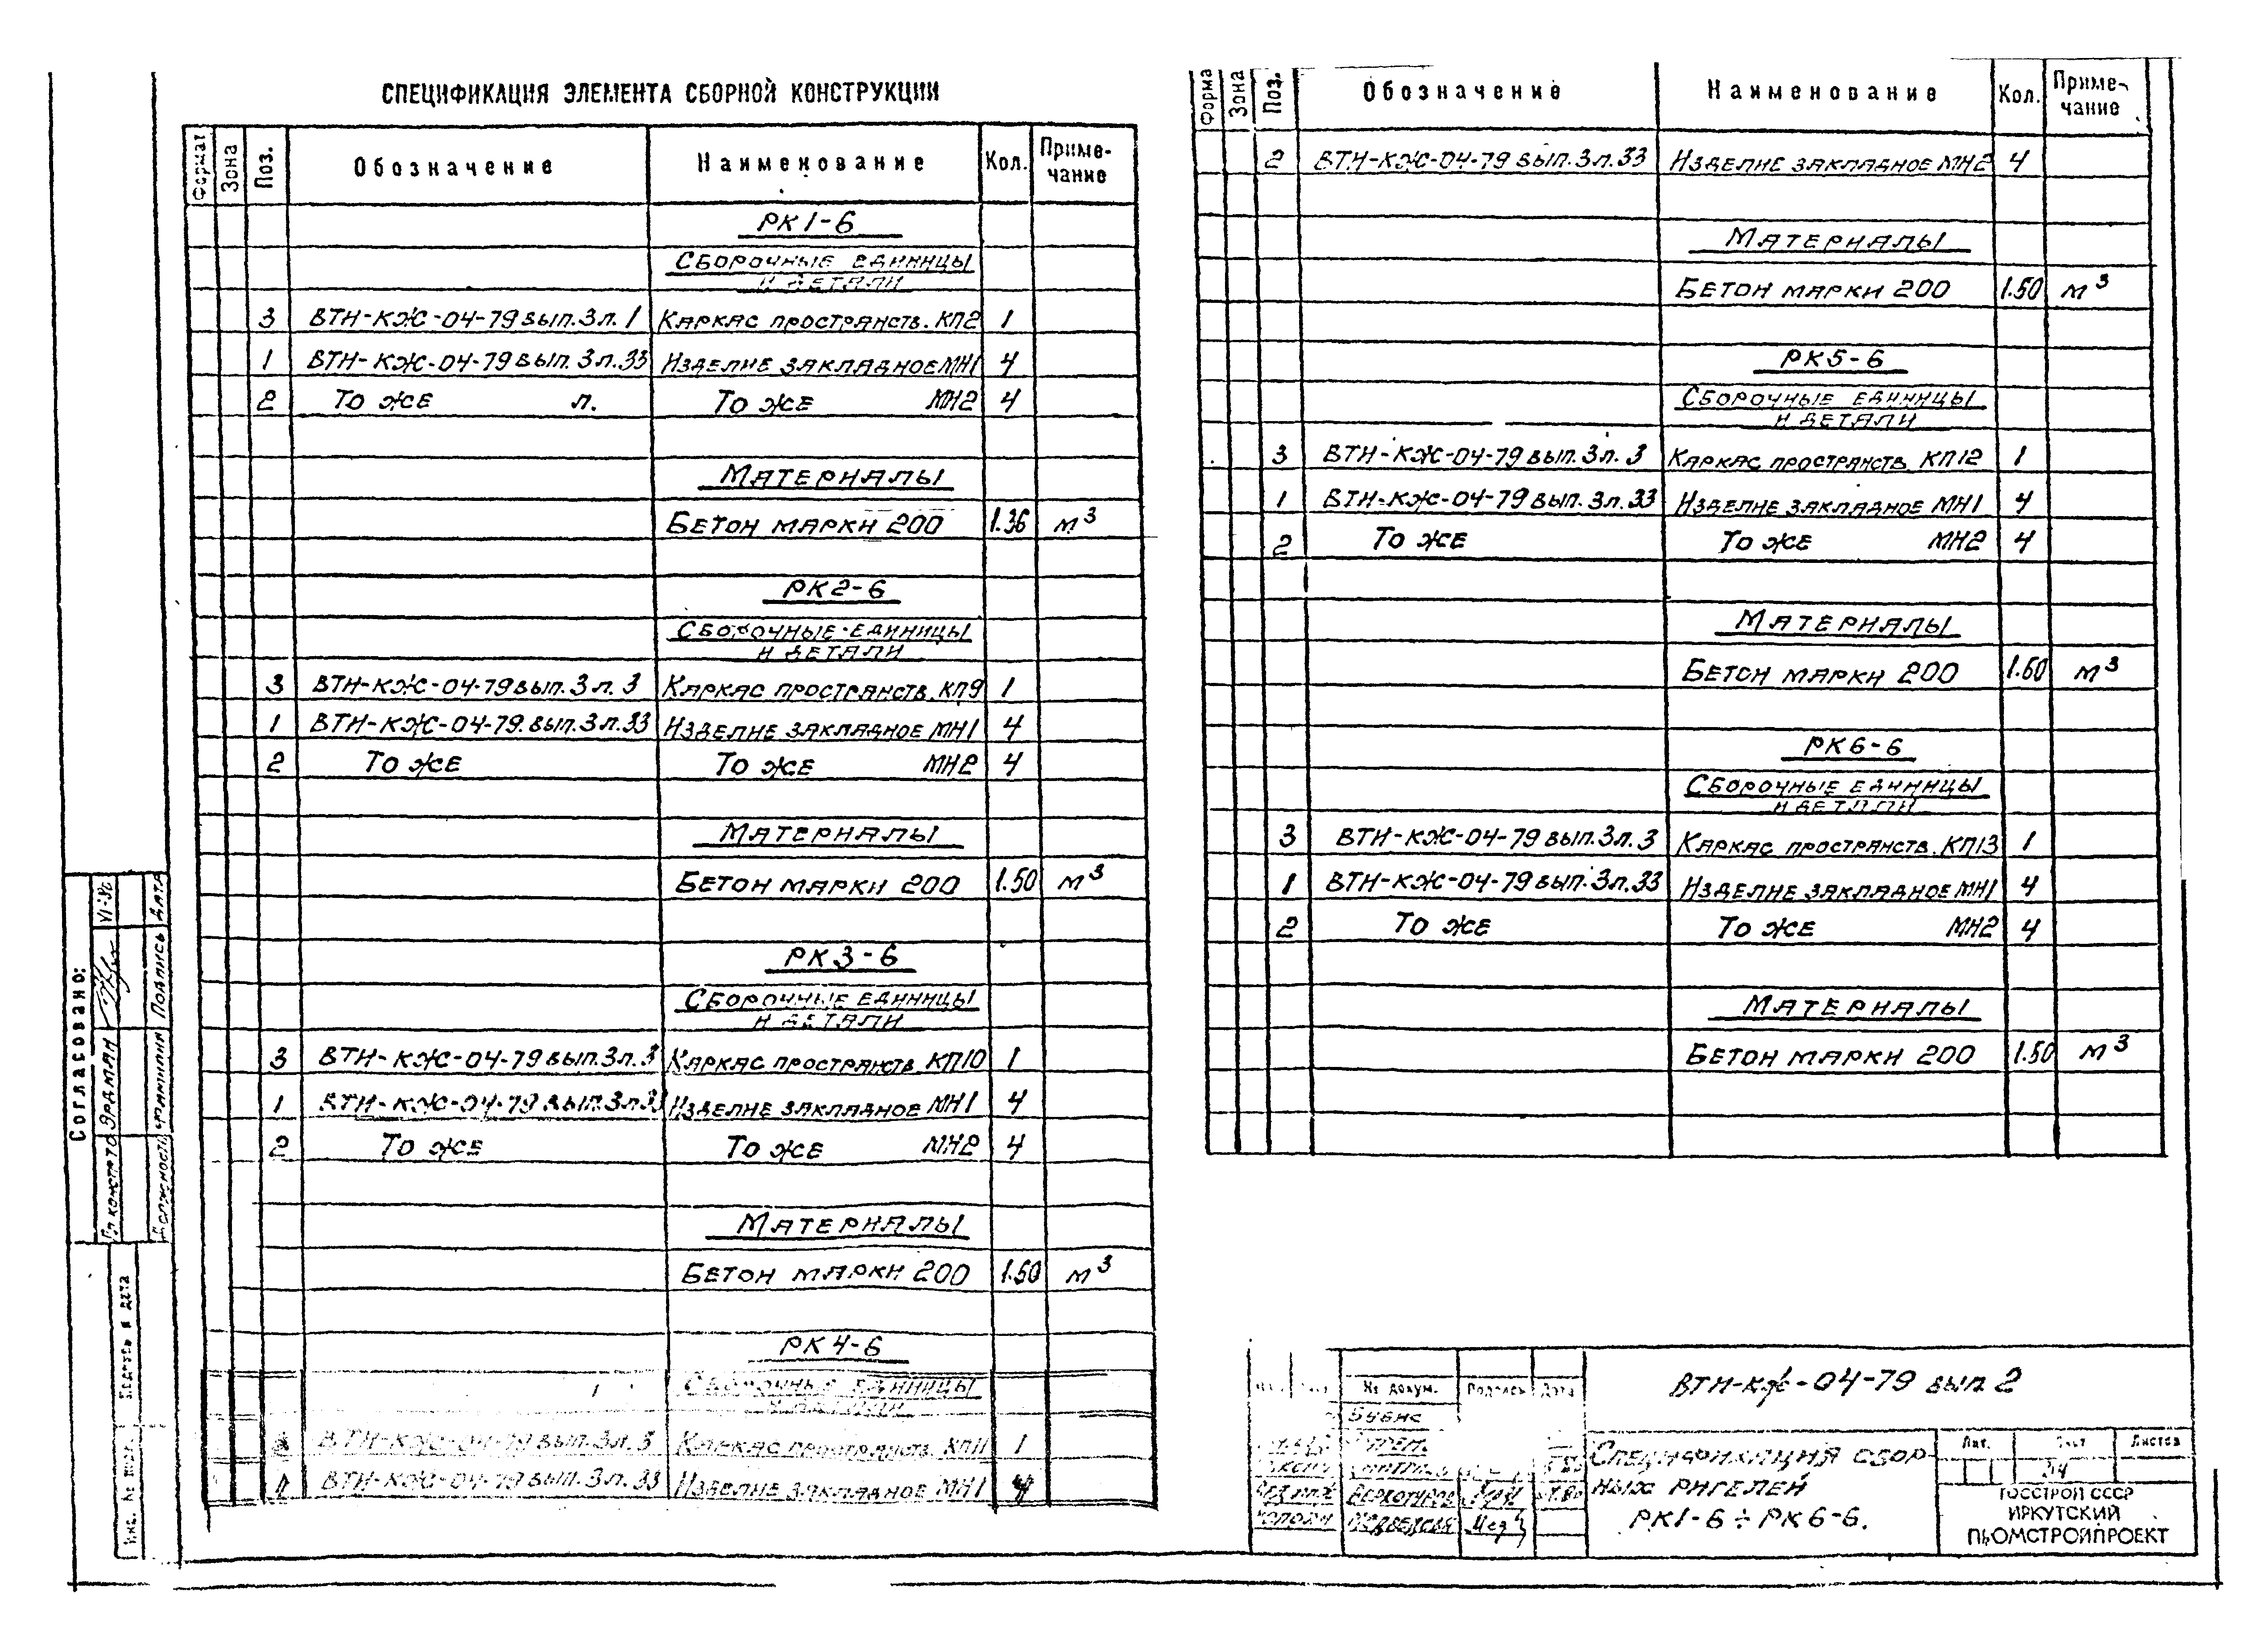 СПЕЦИФИКАЦИЯ ЭЛЕМЕНТА СБОРНОЙ КОНСТРУКЦИИ
Формат Зона Поз. Обозначение Наименование Кол. Приме-
чание
РК1-6
Сборочные единицы
и детали
3 ВТН-КЖ-04-79 вып.3 л.1 Каркас пространств. КП2 1
1 ВТН-КЖ-04-79 вып.3 л.33 Изделие закладное МН1 4
2 То же л. То же МН2 4
Материалы
Бетон марки 200 1.36 м³
РК2-6
Сборочные единицы
и детали
3 ВТН-КЖ-04-79 вып.3 л.3 Каркас пространств. КП9 1
1 ВТН-КЖ-04-79 вып.3 л.33 Изделие закладное МН1 4
2 То же То же МН2 4
Материалы
Бетон марки 200 1.50 м³
РК3-6
Сборочные единицы
и детали
3 ВТН-КЖ-04-79 вып.3 л.3 Каркас пространств. КП10 1
1 ВТН-КЖ-04-79 вып.3 л.33 Изделие закладное МН1 4
2 То же То же МН2 4
Материалы
Бетон марки 200 1.50 м³
РК4-6
Сборочные единицы
и детали
3 ВТН-КЖ-04-79 вып.3 л.3 Каркас пространств. КП11 1
1 ВТН-КЖ-04-79 вып.3 л.33 Изделие закладное МН1 4
Форма Зона Поз. Обозначение Наименование Кол. Приме-
чание
2 ВТН-КЖ-04-79 вып.3 л.33 Изделие закладное МН2 4
Материалы
Бетон марки 200 1.50 м³
РК5-6
Сборочные единицы
и детали
3 ВТН-КЖ-04-79 вып.3 л.3 Каркас пространств КП12 1
1 ВТН-КЖ-04-79 вып.3 л.33 Изделие закладное МН1 4
2 То же То же МН2 4
Материалы
Бетон марки 200 1.50 м³
РК6-6
Сборочные единицы
и детали
3 ВТН-КЖ-04-79 вып.3 л.3 Каркас пространств. КП13 1
1 ВТН-КЖ-04-79 вып.3 л.33 Изделие закладное МН1 4
2 То же То же МН2 4
Материалы
Бетон марки 200 1.50 м³
Согласовано:
Эрдман
Должность Фамилия Подпись Дата
Подпись и дата
Инв. №
№ докум. Подпись Дата
ВТН-КЖ-04-79 вып 2
Спецификация сбор-
ных ригелей
РК1-6 ÷ РК6-6.
Лит. Лист Листов
ГОССТРОЙ СССР
ИРКУТСКИЙ
ПРОМСТРОЙПРОЕКТ